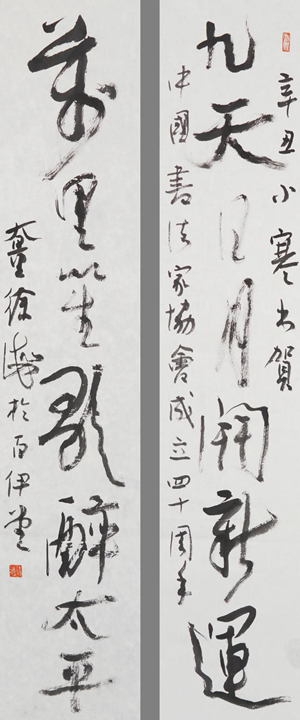 辛丑小寒書賀
九天日月開新運
中國書法家協會成立四十周年
萬里笙歌醉太平
徐海於百伊堂